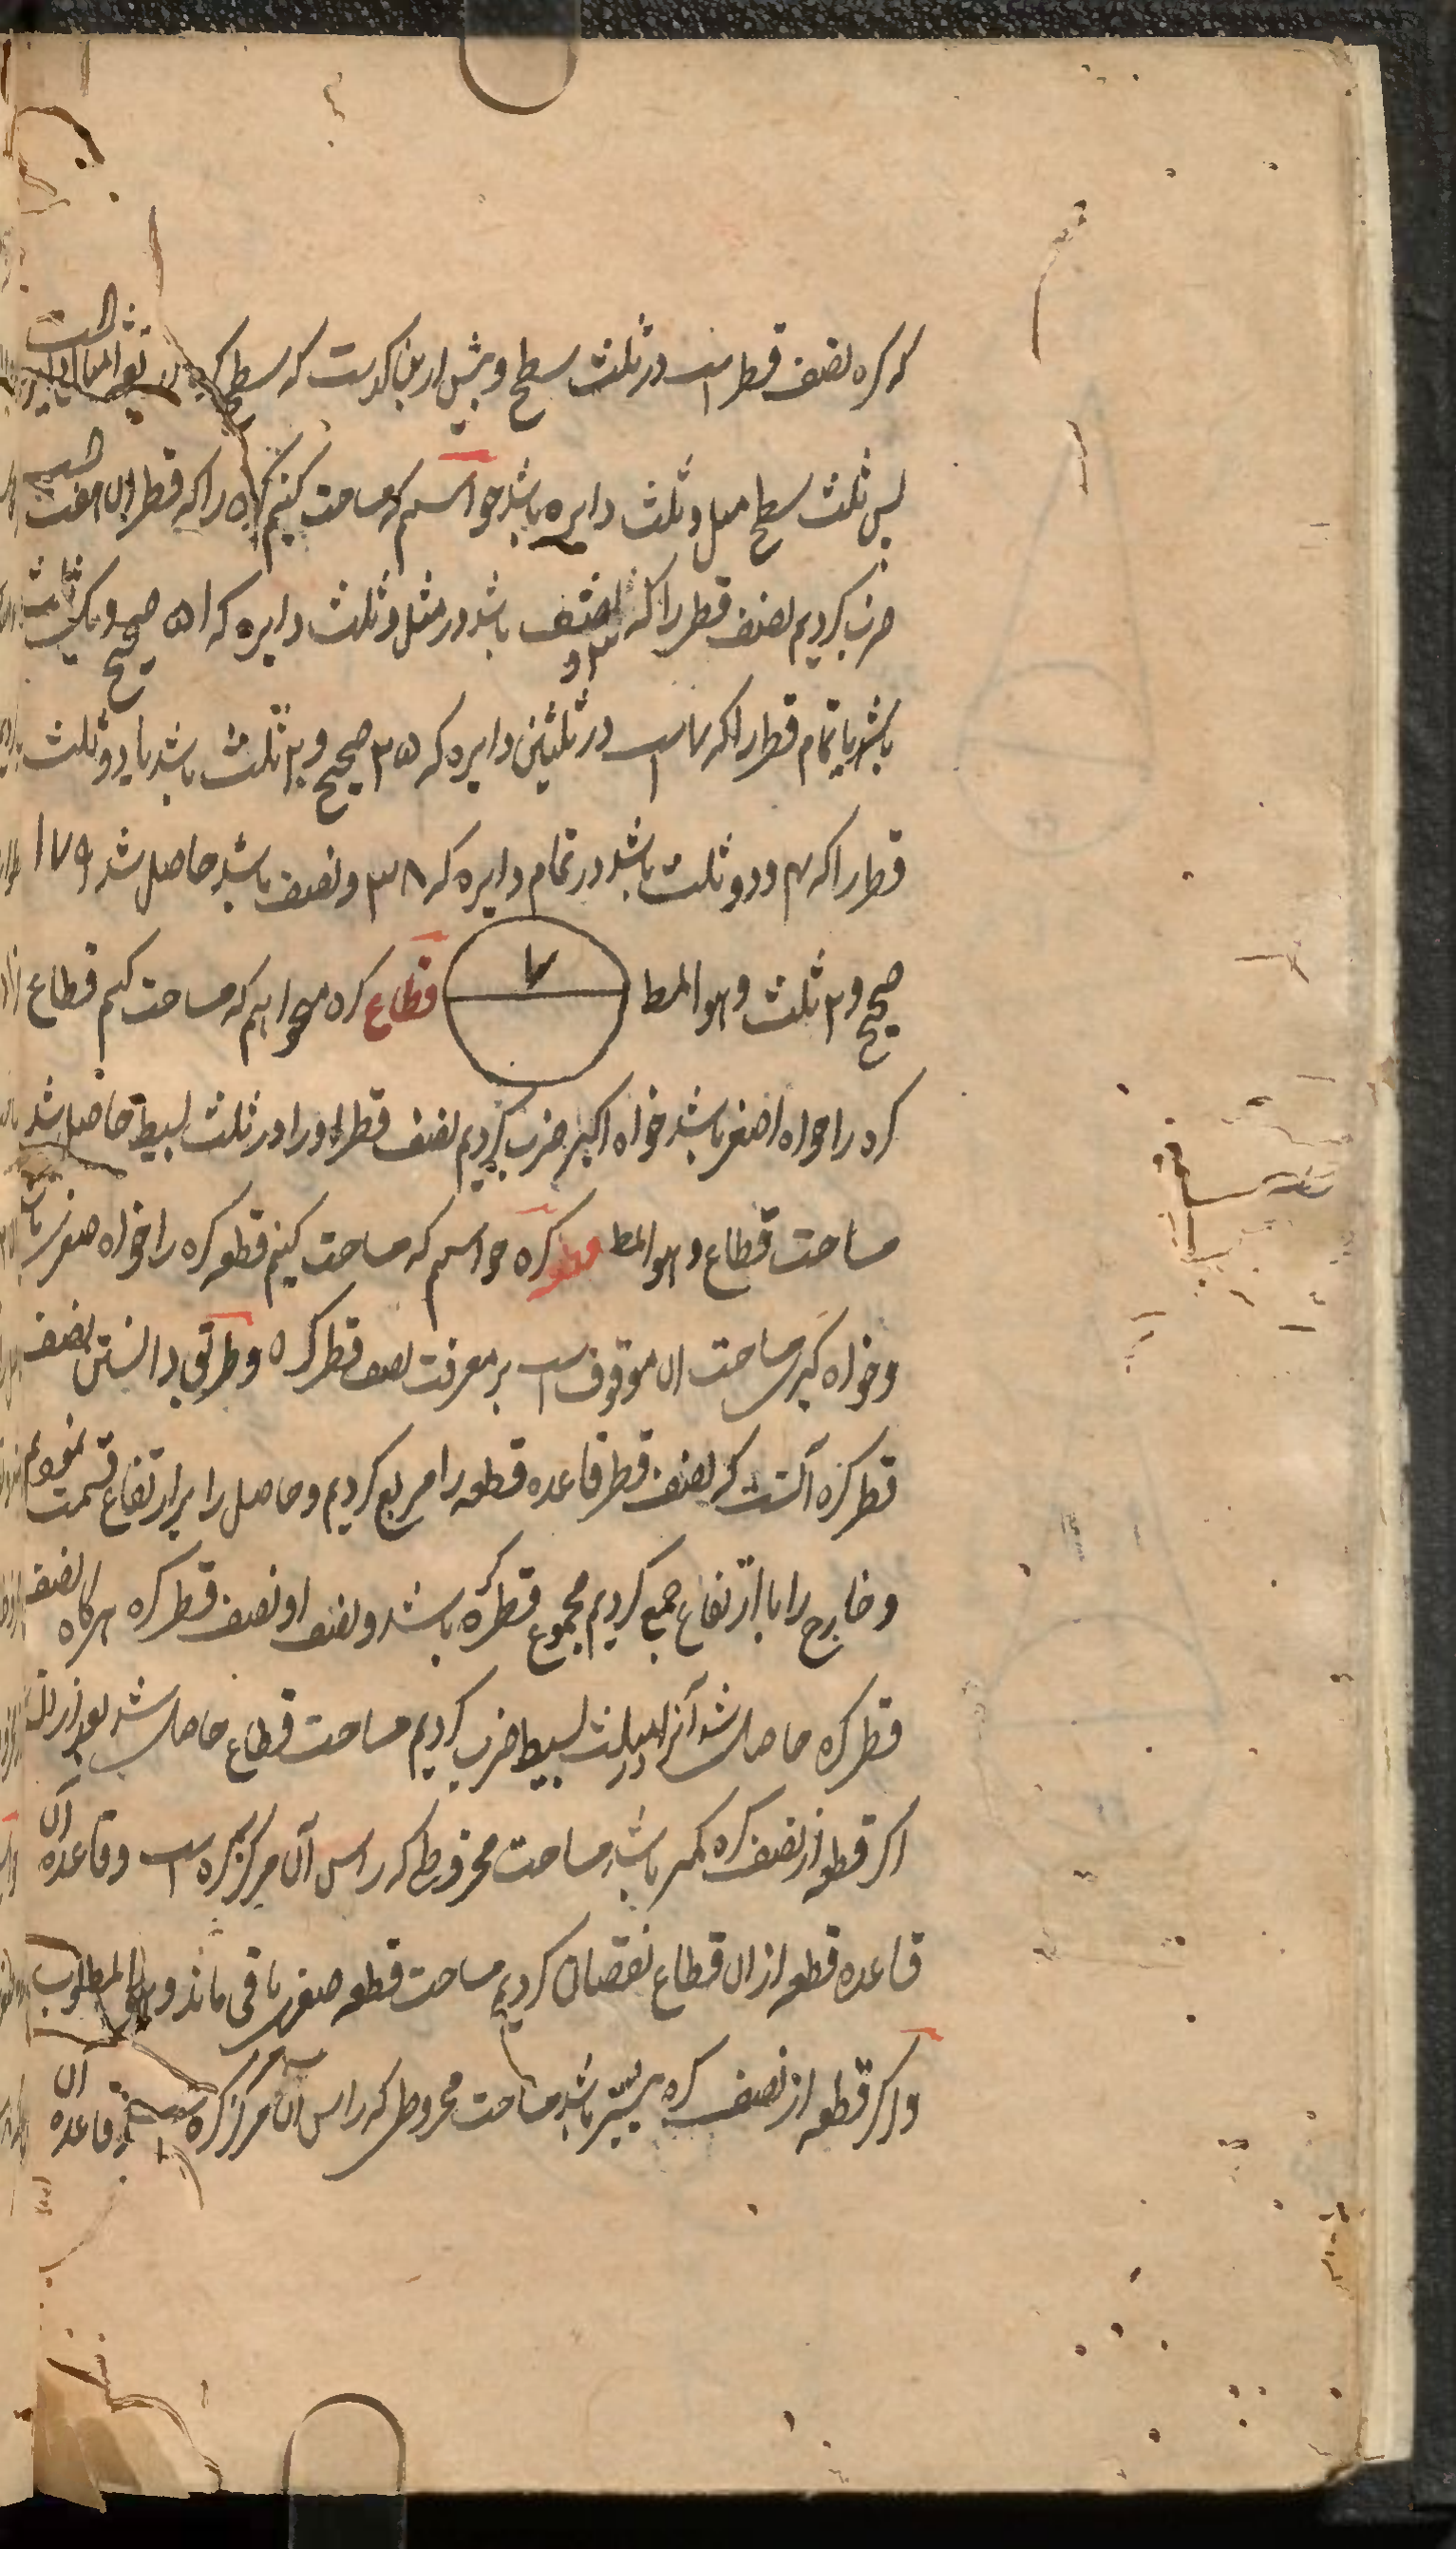 که کره نصف قطر است در ثلث سطح و پیش ازین گذشت که سطح کره
پس ثلث سطح مثل و ثلث دایره باشد خواستیم که مساحت کنیم کره را که قطر آن هفت است
ضرب کردیم نصف قطر را که ۳ و نصف باشد در مثل و ثلث دایره که ۵۱ صحیح و یک ثلث
باشد یا تمام قطر را که ۷ است در ثلثین دایره که ۲۵ صحیح و ۲ ثلث باشد یا دو ثلث
قطر را که ۴ و دو ثلث باشد در تمام دایره که ۳۸ و نصف باشد حاصل شد ۱۷۹
صحیح و ۲ ثلث و هو المط ۷ قطاع کره میخواهیم که مساحت کنیم قطاع
کره را خواه اصغر باشد خواه اکبر ضرب کردیم نصف قطر او را در ثلث بسیط حاصل شد
مساحت قطاع و هو المط قطعه کره خواستیم که مساحت کنیم قطعه کره را خواه صغری باشد
و خواه کبری مساحت آن موقوف است بر معرفت نصف قطر کره و طریق دانستن نصف
قطر کره آنست که نصف قطر قاعده قطعه را مربع کردیم و حاصل را بر ارتفاع قسمت نمودیم
و خارج را با ارتفاع جمع کردیم مجموع قطر کره باشد و نصف او نصف قطر کره هرگاه نصف
قطر کره حاصل شد آنرا در ثلث بسیط ضرب کردیم مساحت قطاع حاصل شد بعد از آن
اکر قطعه از نصف کره کمتر باشد مساحت مخروط که راس آن مرکز کره است و قاعده آن
قاعده قطعه از آن قطاع نقصان کردیم مساحت قطعه صغری باقی ماند و هو المطلوب
و اکر قطعه از نصف کره بیشتر باشد مساحت مخروطی که راس آن مرکز کره است و قاعده آن